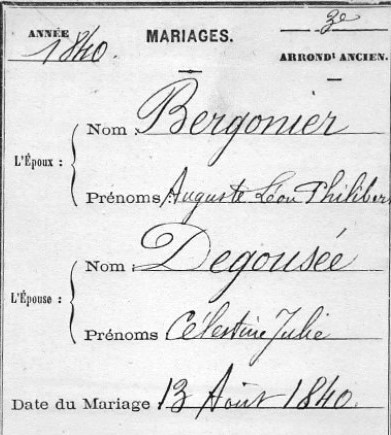 ANNÉE 1840.
MARIAGES.
3e ARRONDt ANCIEN.
L'Époux :
Nom : Bergonier
Prénoms : Auguste Léon Philibert
L'Épouse :
Nom : Degousée
Prénoms : Célestine Julie
Date du Mariage : 13 Août 1840.